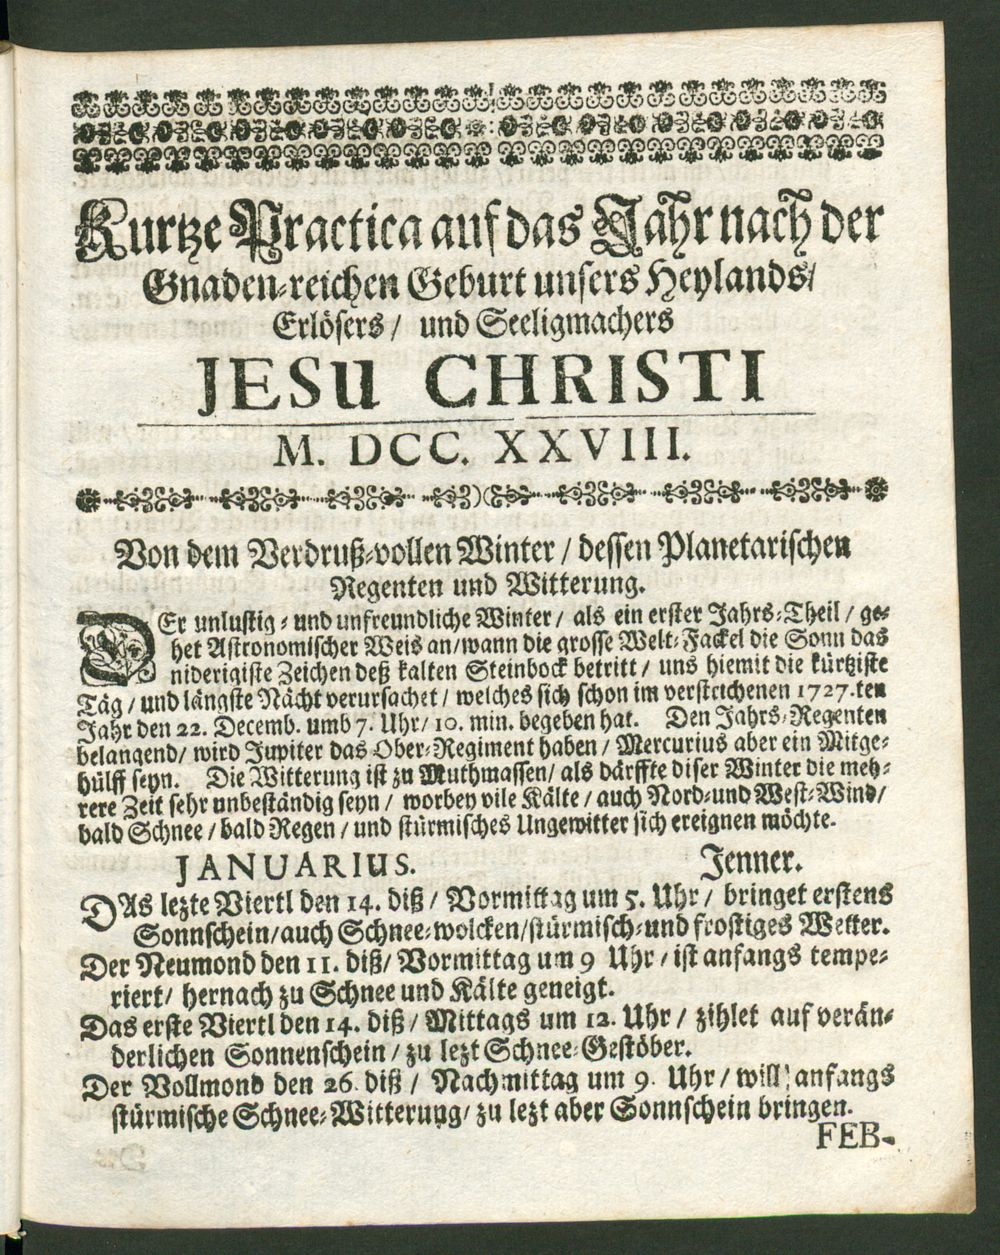 Kurtze Practica auf das Jahr nach der
Gnaden-reichen Geburt unsers Heylands/
Erlösers/ und Seeligmachers
JESU CHRISTI
M. DCC. XXVIII.
Von dem Verdruß-vollen Winter / dessen Planetarischen
Regenten und Witterung.
DEr unlustig- und unfreundliche Winter / als ein erster Jahrs-Theil / ge-
het Astronomischer Weis an/wann die grosse Welt-Fackel die Sonn das
niderigiste Zeichen deß kalten Steinbock betritt / uns hiemit die kürtziste
Täg / und längste Nächt verursachet / welches sich schon im verstrichenen 1727.ten
Jahr den 22. Decemb. umb 7. Uhr/ 10. min. begeben hat. Den Jahrs-Regenten
belangend/ wird Jupiter das Ober-Regiment haben / Mercurius aber ein Mitge-
hülff seyn. Die Witterung ist zu Muthmassen/ als därffte diser Winter die meh-
rere Zeit sehr unbeständig seyn / worbey vile Kälte / auch Nord-und West-Wind/
bald Schnee / bald Regen / und stürmisches Ungewitter sich ereignen möchte.
JANUARIUS. Jenner.
DAs lezte Viertl den 14. diß / Vormittag um 5. Uhr / bringet erstens
Sonnschein/auch Schnee-wolcken/stürmisch-und frostiges Wetter.
Der Neumond den 11. diß/ Vormittag um 9 Uhr / ist anfangs tempe-
riert/ hernach zu Schnee und Kälte geneigt.
Das erste Viertl den 14. diß / Mittags um 12. Uhr / zihlet auf verän-
derlichen Sonnenschein / zu lezt Schnee-Gestöber.
Der Vollmond den 26. diß / Nachmittag um 9. Uhr / will anfangs
stürmische Schnee-Witterung/ zu lezt aber Sonnschein bringen.
FEB-